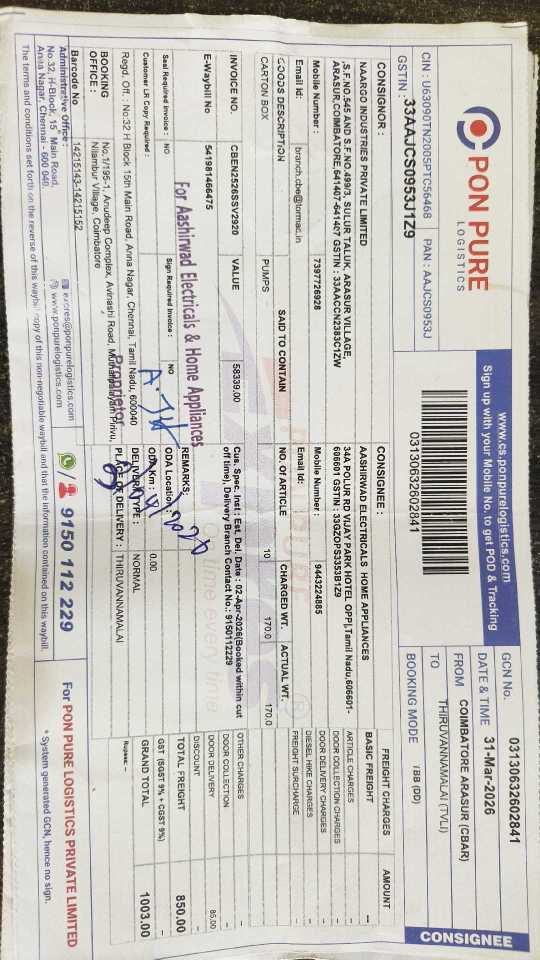 PON PURE
LOGISTICS
CIN : U63090TN2005PTC56468 PAN : AAJCS0953J
GSTIN : 33AAJCS0953J1Z9
www.cs.ponpurelogistics.com
Sign up with your Mobile No. to get POD & Tracking
03130632602841
GCN No. 03130632602841
DATE & TIME 31-Mar-2026
FROM COIMBATORE ARASUR (CBAR)
TO THIRUVANNAMALAI (TVLI)
BOOKING MODE TBB (DD)
CONSIGNEE
CONSIGNOR :
NAARGO INDUSTRIES PRIVATE LIMITED
,S.F.NO.545 AND S.F.NO.499/3, SULUR TALUK, ARASUR VILLAGE,
ARASUR,COIMBATORE-641407-641407 GSTIN : 33AACCN2383C1ZW
Mobile Number : 7397726928
Email Id: branch.cbe@tormac.in
CONSIGNEE :
AASHIRWAD ELECTRICALS HOME APPLIANCES
34A POLUR RD VIJAY PARK HOTEL OPP|,Tamil Nadu,606601-
606601 GSTIN : 33GZOPS3353B1Z9
Mobile Number : 9443224885
Email Id:
FREIGHT CHARGES AMOUNT
BASIC FREIGHT --
ARTICLE CHARGES -
DOOR COLLECTION CHARGES -
DOOR DELIVERY CHARGES -
DIESEL HIKE CHARGES -
FREIGHT SURCHARGE -
OTHER CHARGES -
DOOR COLLECTION -
DOOR DELIVERY 85.00
DISCOUNT -
TOTAL FREIGHT 850.00
GST (SGST 9% + CGST 9%)
GRAND TOTAL 1003.00
Rupees:
GOODS DESCRIPTION SAID TO CONTAIN NO. OF ARTICLE CHARGED WT. ACTUAL WT.
CARTON BOX PUMPS 10 170.0 170.0
INVOICE NO. CBEN2526SSV2920 VALUE 58339.00
Cus. Spec. Inst : Est. Del. Date : 02-Apr-2026(Booked within cut
off time), Delivery Branch Contact No.: 9150112229
E-Waybill No 541981466475
REMARKS:
For Aashirwad Electricals & Home Appliances
Seal Required Invoice : NO Sign Required Invoice : NO
ODA Location :
Customer LR Copy Required :
ODA Km : 0.00
Regd. Off. : No:32 H Block 15th Main Road, Anna Nagar, Chennai, Tamil Nadu, 600040
DELIVERY TYPE : NORMAL
Proprietor
BOOKING OFFICE : No.1/195-1, Anudeep Complex, Avinashi Road, Muthaipalayam Pirivu,
Nilambur Village, Coimbatore
PLACE OF DELIVERY : THIRUVANNAMALAI
Barcode No 14215143-14215152
Administrative Office :
No.32, H-Block, 15 Main Road,
Anna Nagar, Chennai - 600 040.
www.ponpurelogistics.com
9150 112 229
For PON PURE LOGISTICS PRIVATE LIMITED
* System generated GCN, hence no sign.
The terms and conditions set forth on the reverse of this waybill copy of this non-negotiable waybill and that the information contained on this waybill.